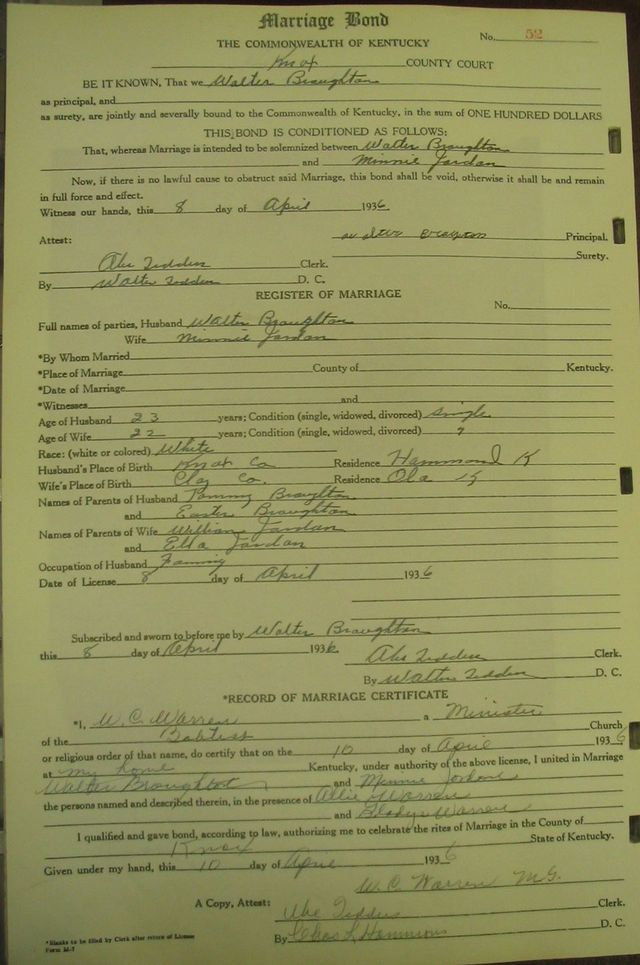 Marriage Bond
No. 52
THE COMMONWEALTH OF KENTUCKY
Knox COUNTY COURT
BE IT KNOWN, That we Walter Broughton
as principal, and
as surety, are jointly and severally bound to the Commonwealth of Kentucky, in the sum of ONE HUNDRED DOLLARS
THIS BOND IS CONDITIONED AS FOLLOWS:
That, whereas Marriage is intended to be solemnized between Walter Broughton
and Minnie Jordan
Now, if there is no lawful cause to obstruct said Marriage, this bond shall be void, otherwise it shall be and remain
in full force and effect.
Witness our hands, this 8 day of April 1936
Walter Principal.
Attest: Surety.
Abe Clerk.
By Walter D. C.
REGISTER OF MARRIAGE
No.
Full names of parties, Husband Walter Broughton
Wife Minnie Jordan
*By Whom Married
*Place of Marriage County of Kentucky.
*Date of Marriage
*Witnesses and
Age of Husband 23 years; Condition (single, widowed, divorced) Single
Age of Wife 22 years; Condition (single, widowed, divorced) "
Race: (white or colored) White
Husband's Place of Birth Knox Co Residence Hammond K
Wife's Place of Birth Clay Co. Residence Ola K
Names of Parents of Husband Broughton
and Easter Broughton
Names of Parents of Wife William Jordan
and Ella Jordan
Occupation of Husband Farming
Date of License 8 day of April 1936
Subscribed and sworn to before me by Walter Broughton
this 8 day of April 1936.
Abe Clerk.
By Walter D. C.
*RECORD OF MARRIAGE CERTIFICATE
*I, W. C. Warren a Minister
of the Babtist Church
or religious order of that name, do certify that on the 10 day of April 1936
at my home Kentucky, under authority of the above license, I united in Marriage
Walter Broughton and Minnie
the persons named and described therein, in the presence of Allie Warren
and Gladys Warren
I qualified and gave bond, according to law, authorizing me to celebrate the rites of Marriage in the County of
Knox State of Kentucky.
Given under my hand, this 10 day of April 1936
W. C. Warren M.G.
A Copy, Attest: Abe Clerk.
By Chas L Hammons D. C.
*Blanks to be filled by Clerk after return of License
Form M-7